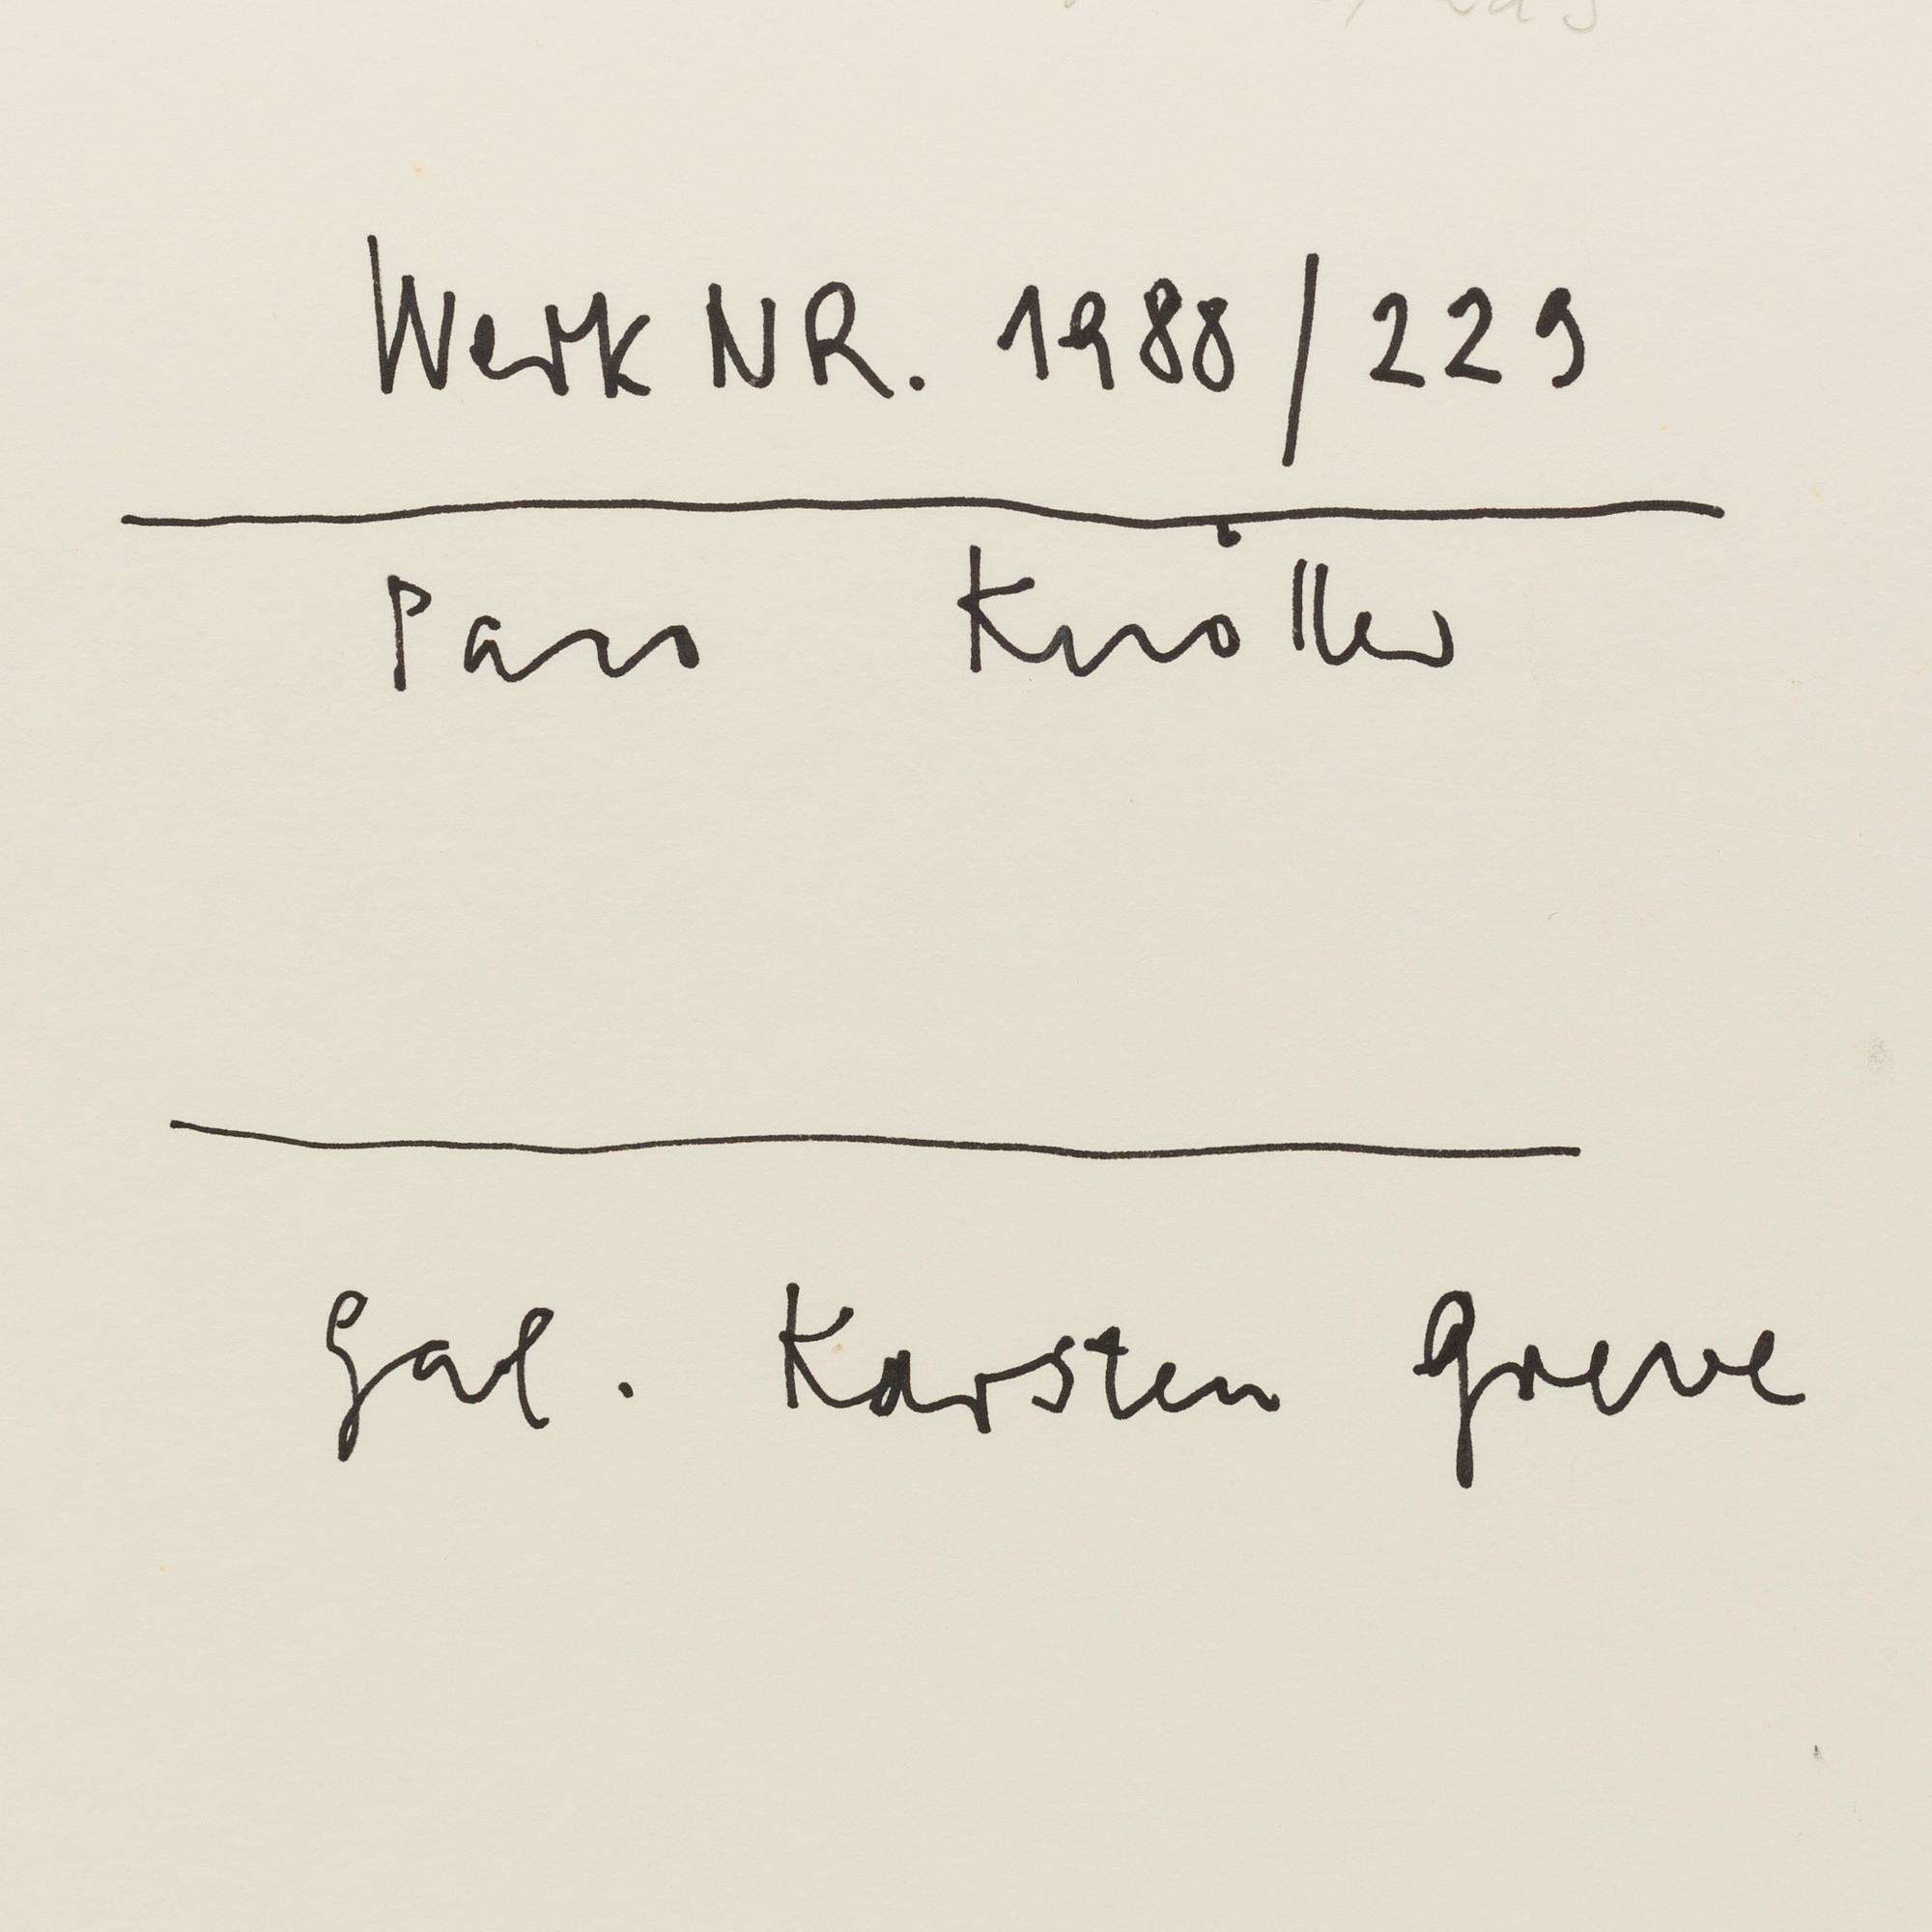 Werk NR. 1988/229
Knöller
Gal. Karsten Greve